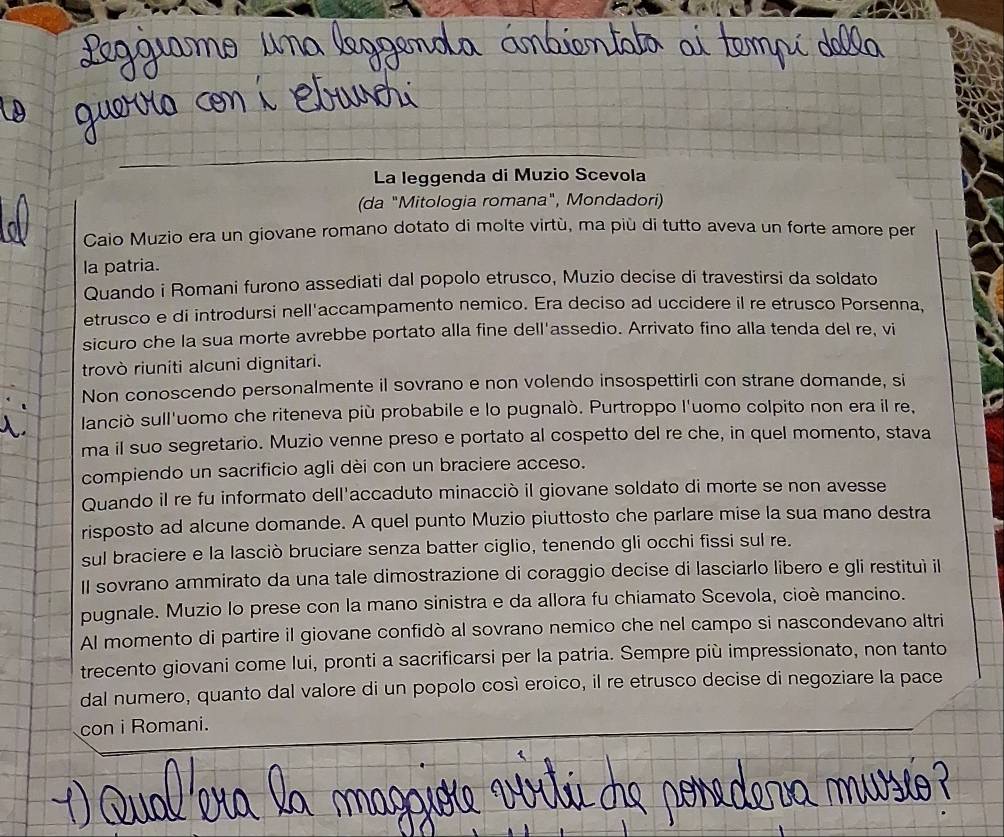 Leggiamo una leggenda ambientata ai tempi della
guerra con i etruschi
La leggenda di Muzio Scevola
(da "Mitologia romana", Mondadori)
Caio Muzio era un giovane romano dotato di molte virtù, ma più di tutto aveva un forte amore per
la patria.
Quando i Romani furono assediati dal popolo etrusco, Muzio decise di travestirsi da soldato
etrusco e di introdursi nell'accampamento nemico. Era deciso ad uccidere il re etrusco Porsenna,
sicuro che la sua morte avrebbe portato alla fine dell'assedio. Arrivato fino alla tenda del re, vi
trovò riuniti alcuni dignitari.
Non conoscendo personalmente il sovrano e non volendo insospettirli con strane domande, si
lanciò sull'uomo che riteneva più probabile e lo pugnalò. Purtroppo l'uomo colpito non era il re,
ma il suo segretario. Muzio venne preso e portato al cospetto del re che, in quel momento, stava
compiendo un sacrificio agli dèi con un braciere acceso.
Quando il re fu informato dell'accaduto minacciò il giovane soldato di morte se non avesse
risposto ad alcune domande. A quel punto Muzio piuttosto che parlare mise la sua mano destra
sul braciere e la lasciò bruciare senza batter ciglio, tenendo gli occhi fissi sul re.
Il sovrano ammirato da una tale dimostrazione di coraggio decise di lasciarlo libero e gli restituì il
pugnale. Muzio lo prese con la mano sinistra e da allora fu chiamato Scevola, cioè mancino.
Al momento di partire il giovane confidò al sovrano nemico che nel campo si nascondevano altri
trecento giovani come lui, pronti a sacrificarsi per la patria. Sempre più impressionato, non tanto
dal numero, quanto dal valore di un popolo così eroico, il re etrusco decise di negoziare la pace
con i Romani.
1) Qual'era la maggiore virtù che possedeva muzio?